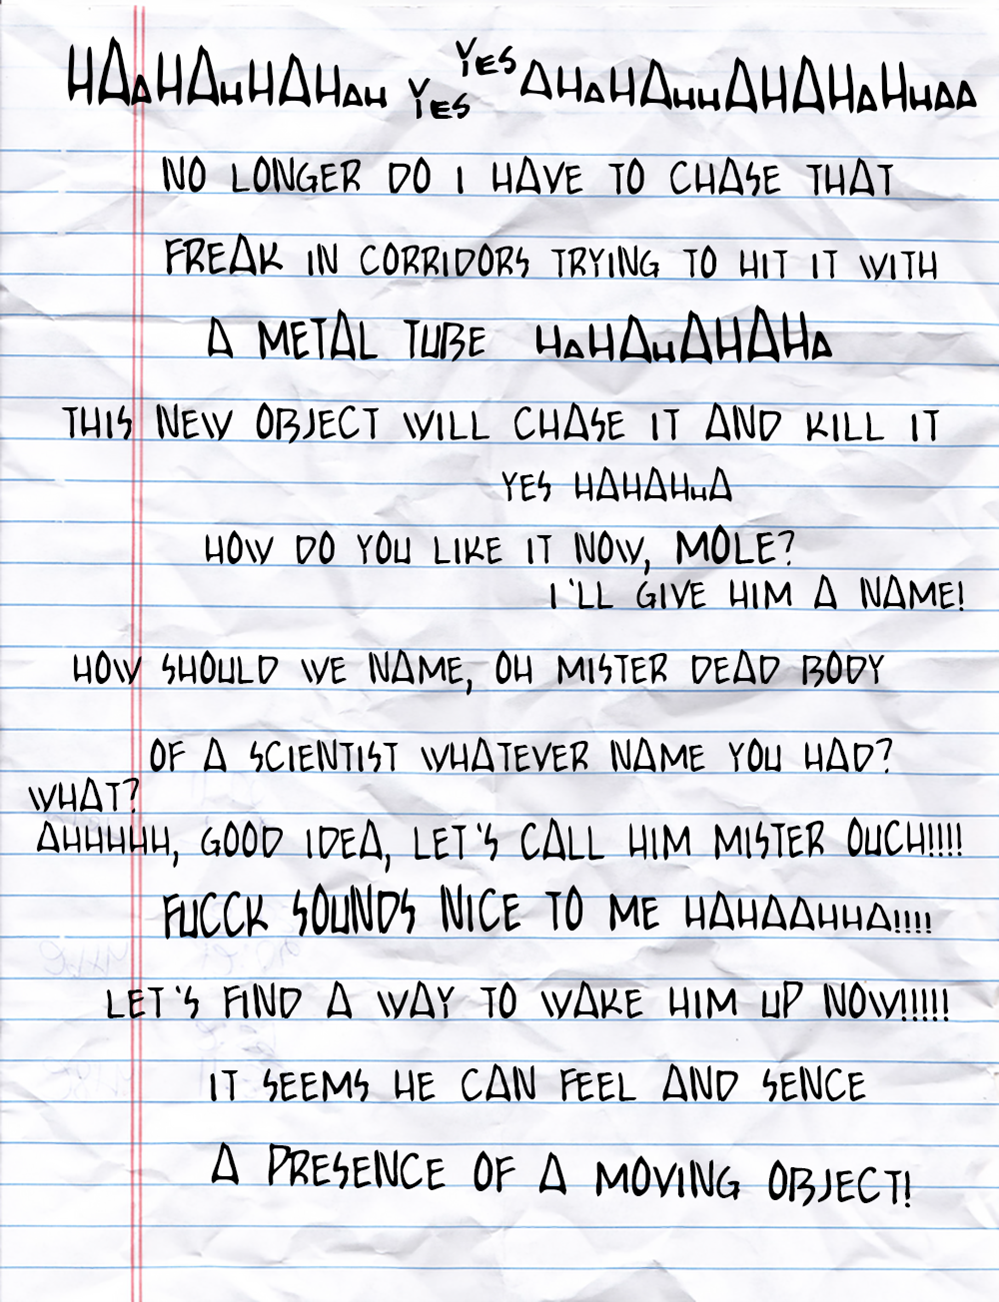 HAAHAHHAHAH YES YES AHAHAHHAHAHAHHAA
NO LONGER DO I HAVE TO CHASE THAT
FREAK IN CORRIDORS TRYING TO HIT IT WITH
A METAL TUBE HAHAHAHAHA
THIS NEW OBJECT WILL CHASE IT AND KILL IT
YES HAHAHHA
HOW DO YOU LIKE IT NOW, MOLE?
I'LL GIVE HIM A NAME!
HOW SHOULD WE NAME, OH MISTER DEAD BODY
OF A SCIENTIST WHATEVER NAME YOU HAD?
WHAT?
AHHHHH, GOOD IDEA, LET'S CALL HIM MISTER OUCH!!!!
FUCCK SOUNDS NICE TO ME HAHAAHHA!!!!
LET'S FIND A WAY TO WAKE HIM UP NOW!!!!!
IT SEEMS HE CAN FEEL AND SENCE
A PRESENCE OF A MOVING OBJECT!